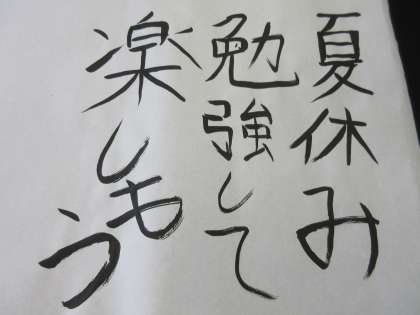 夏休み
勉強して
楽しもう